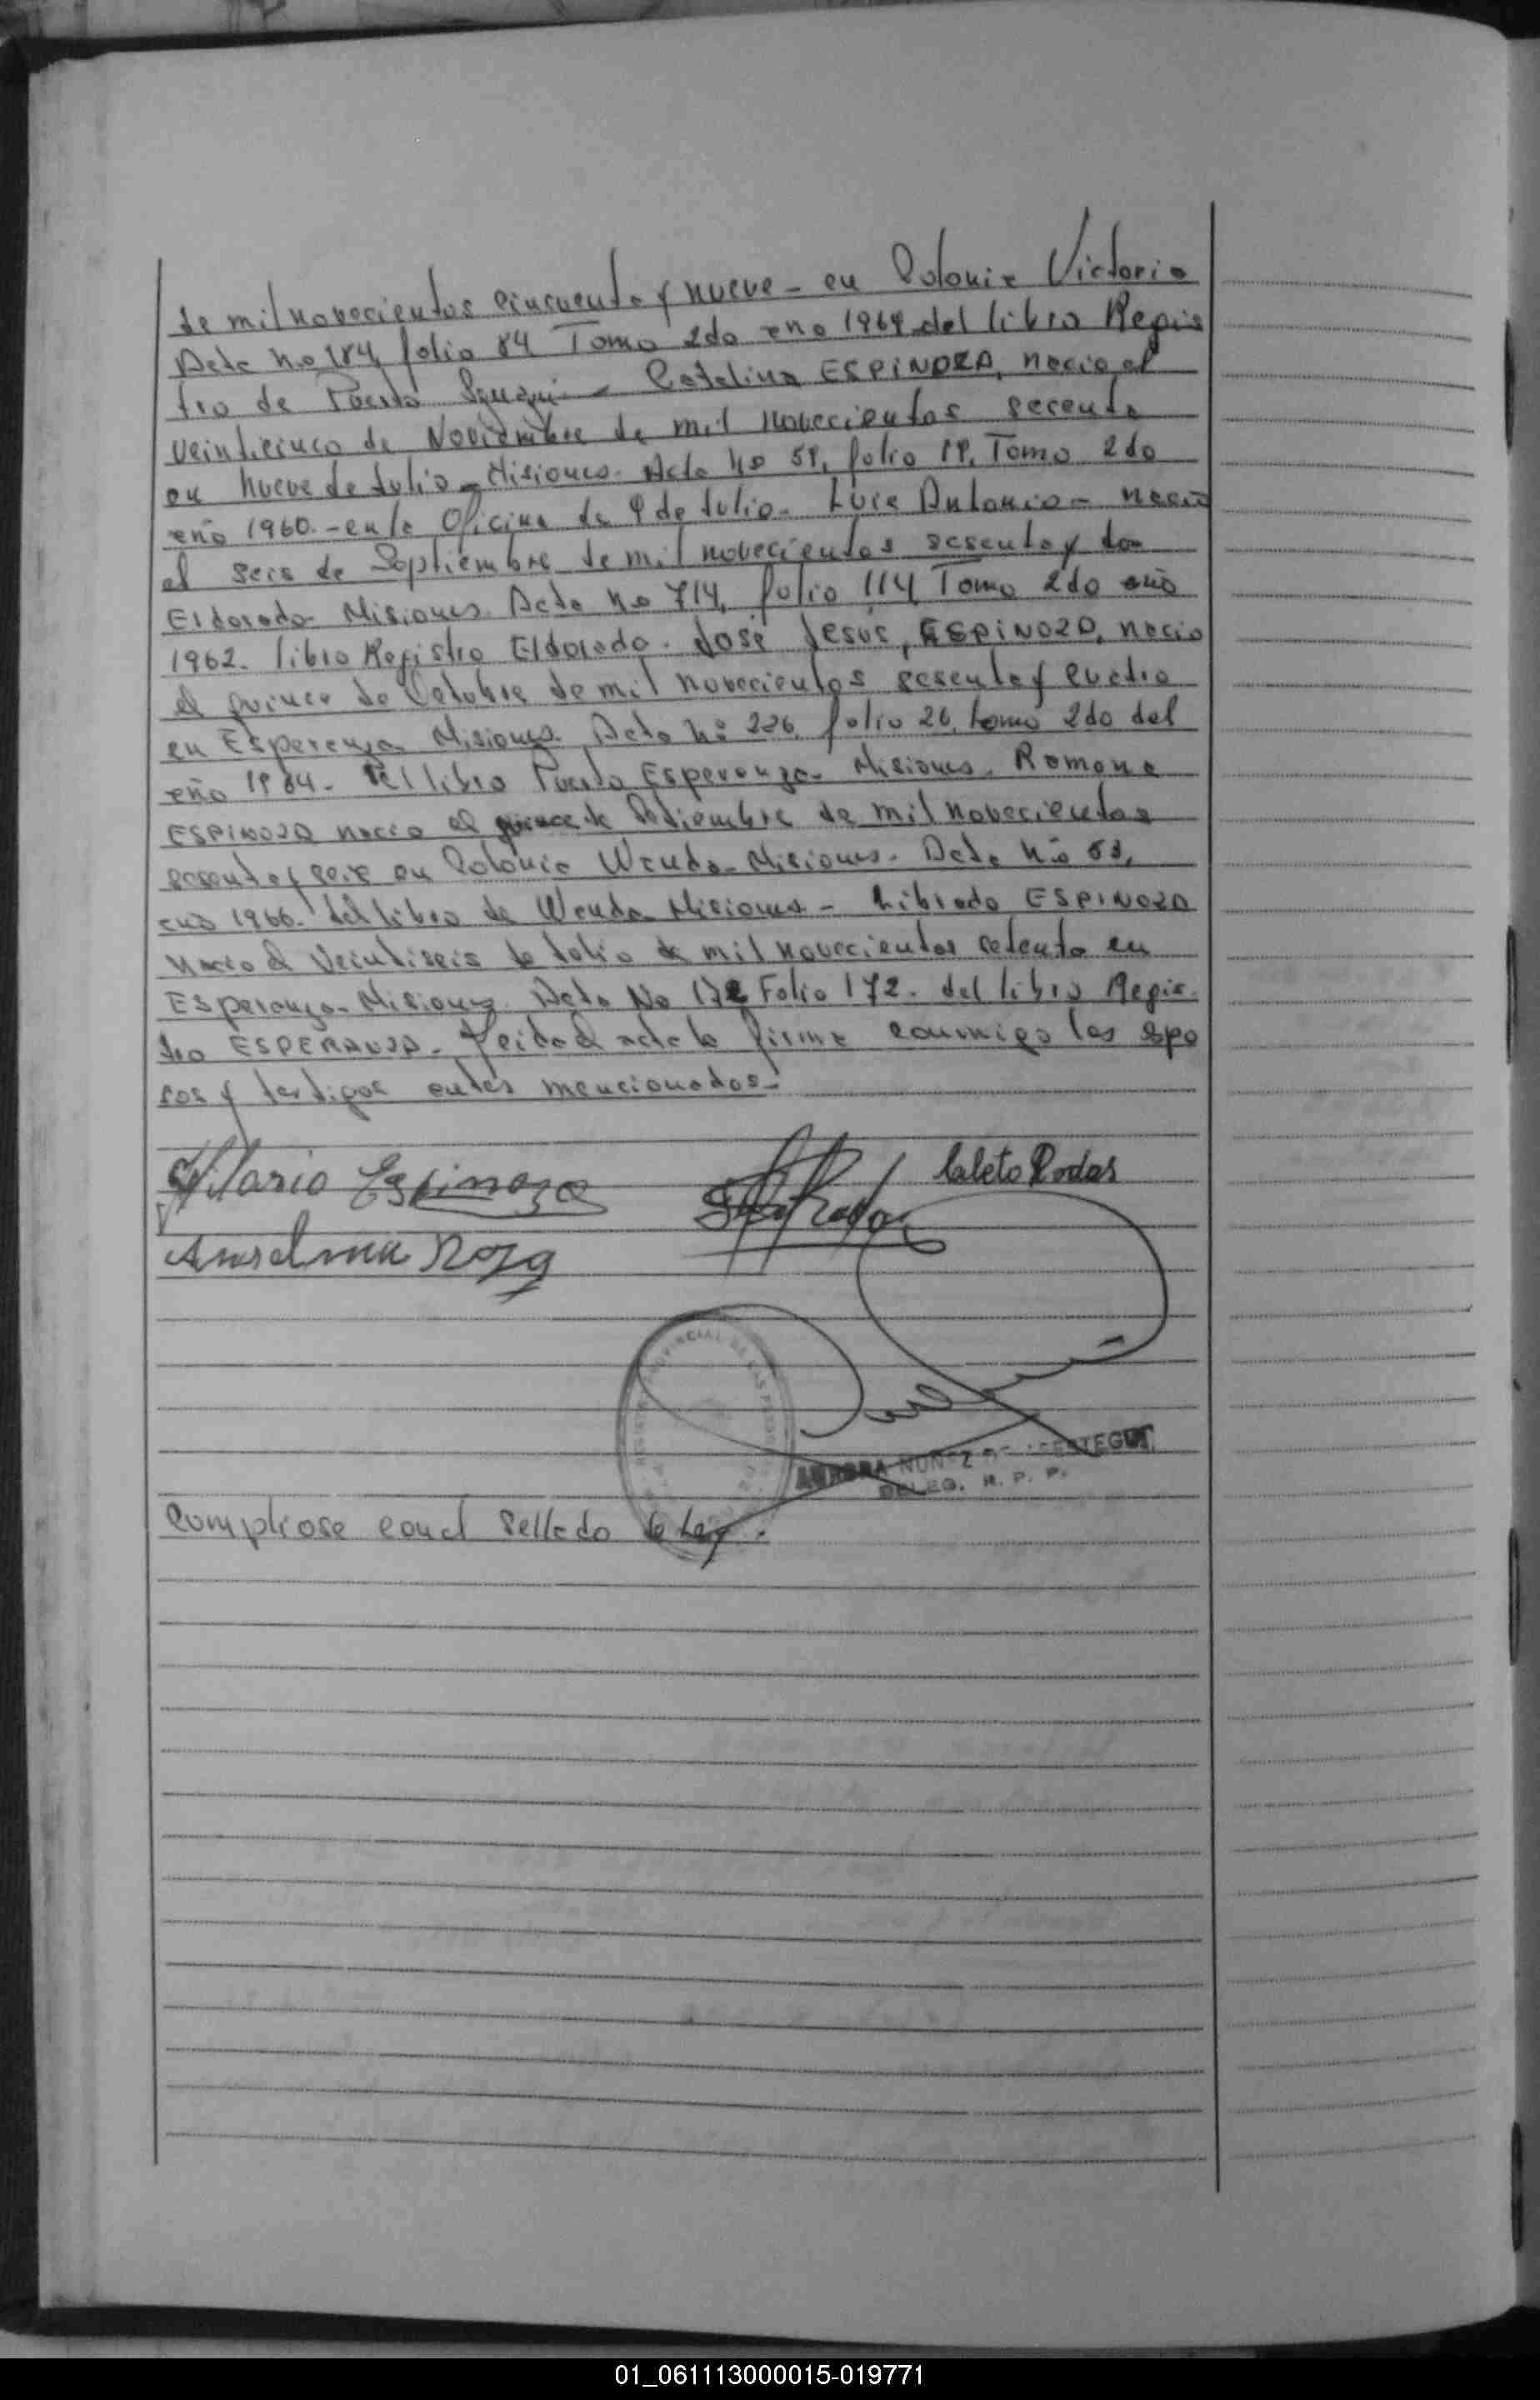 de mil novecientos cincuenta y nueve - en Colonia Victoria
Acta No 184, folio 84 Tomo 2do año 1964 del libro Regis
tro de Puerto - Catalina ESPINOZA, nacio el
veinticinco de Noviembre de mil novecientos secenta
en Nueve de Julio - Misiones. Acta No 59, folio 19, Tomo 2do
año 1960.- en la Oficina de 9 de Julio. Luis Antonio - nacio
el seis de Septiembre de mil novecientos sesenta y dos
Eldorado Misiones. Acta No 714, folio 114 Tomo 2do año
1962. libro Registro Eldorado. José Jesus, ESPINOZA, nacio
el quince de Octubre de mil novecientos sesenta y cuatro
en Esperanza Misiones. Acta No 226, folio 26, tomo 2do del
año 1964. del libro Puerto Esperanza - Misiones. Romona
ESPINOZA nacio el quince de de mil novecientos
sesenta y seis en Colonia Wanda - Misiones. Acta No 53,
año 1966. del libro de Wanda Misiones - Librada ESPINOZA
nacio el veintiseis de Julio de mil novecientos setenta en
Esperanza - Misiones. Acta No 172 Folio 172. del libro Regis-
tro ESPERANZA. Leida el acta la firma conmigo los espo
sos y testigos antes mencionados.-
Hilario Espinoza
Cleto Rodas
Anselma Roza
PROVINCIAL DE LAS PERSONAS
AURORA NUÑEZ DE
DELEG. R. P. P.
Compliose con el Sellado de Ley.
01_061113000015-019771